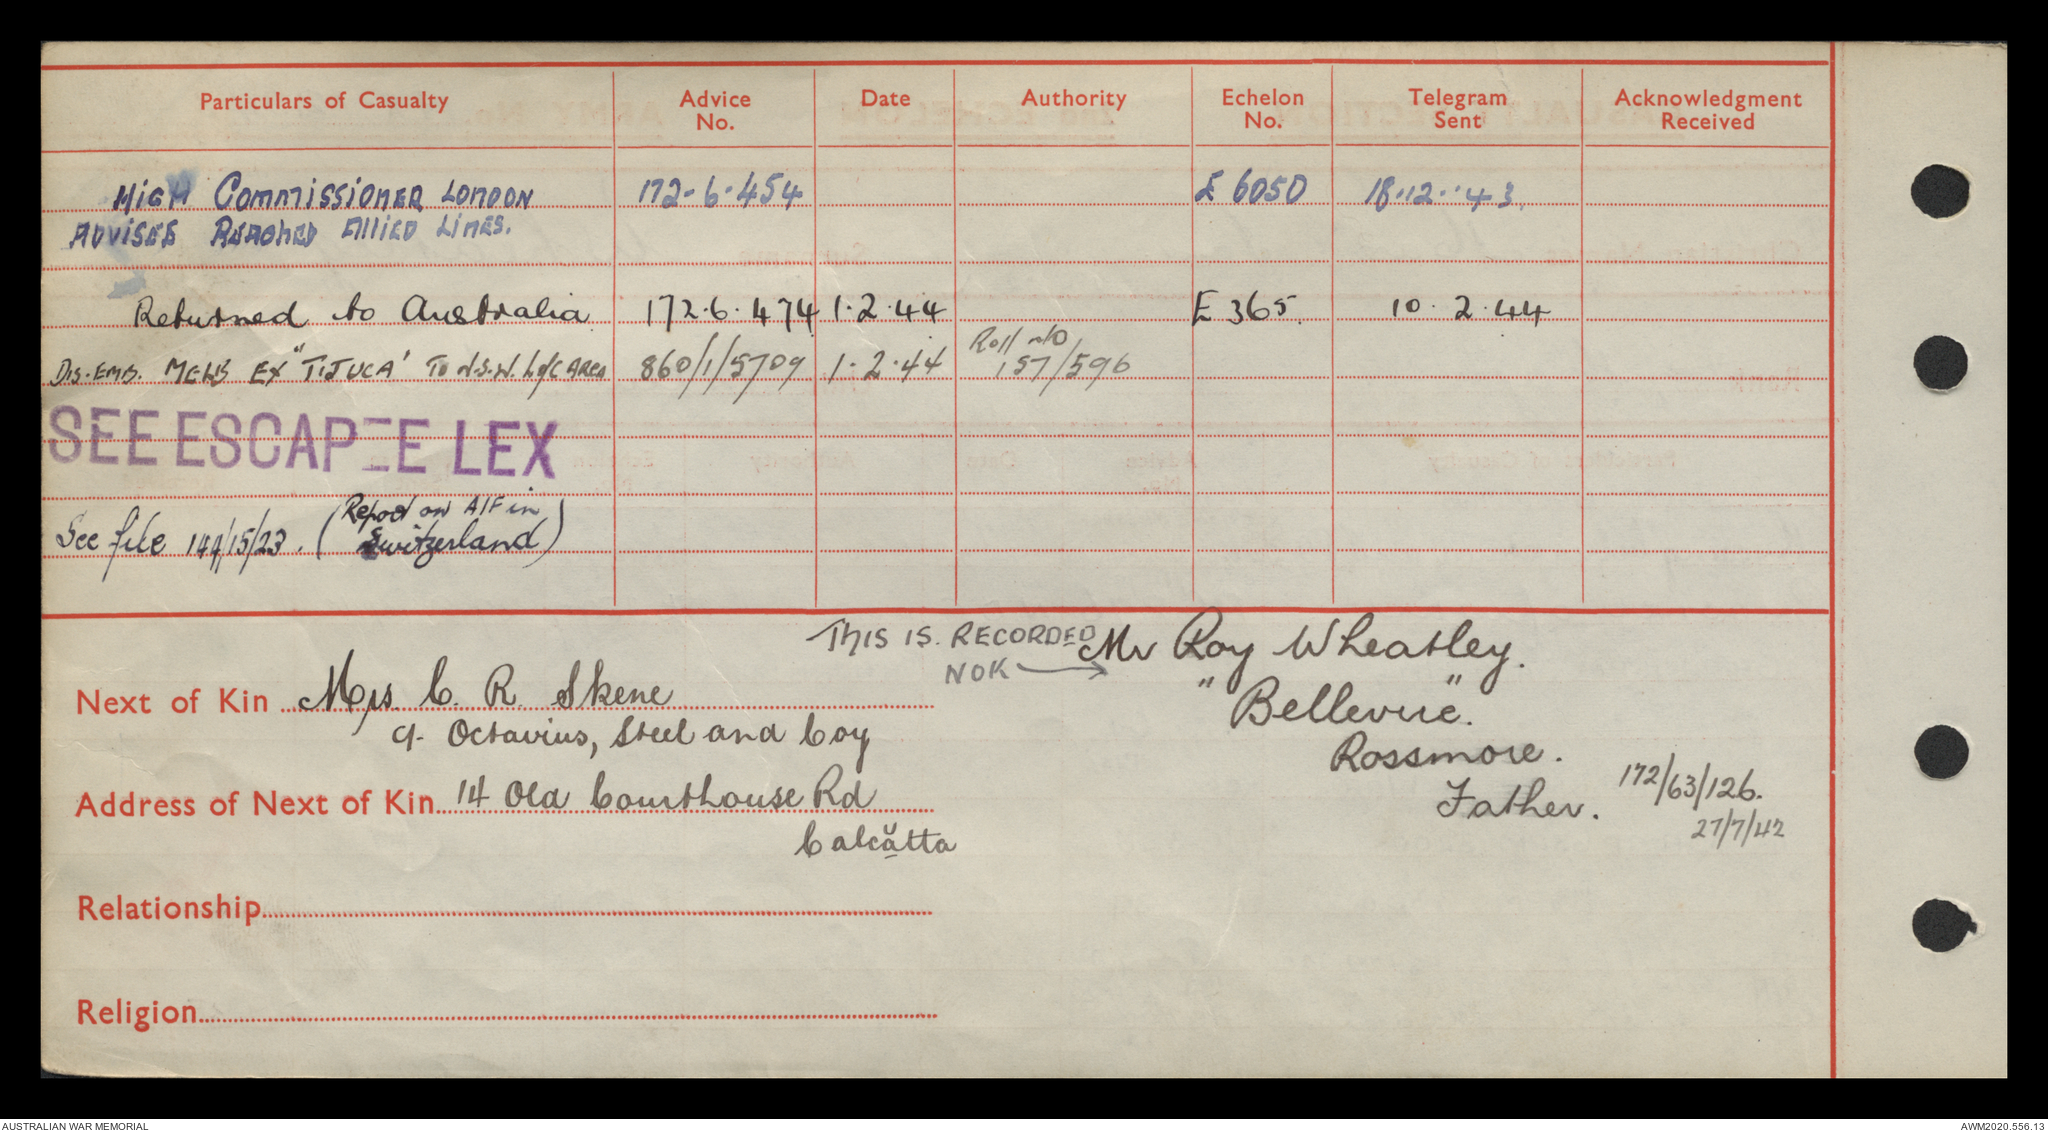 Particulars of Casualty Advice No. Date Authority Echelon No. Telegram Sent Acknowledgment Received
HIGH COMMISSIONER LONDON 172-6-454 E 6050 18.12.43.
ADVISES REACHED ALLIED LINES.
Returned to Australia 172.6.474 1.2.44 E 365. 10.2.44
DIS.EMB. MELB EX "TIJUCA" TO N.S.W. L of C AREA 860/1/5709 1.2.44 Roll No 157/596
SEE ESCAPEE LEX
See file 144/15/23. (Report on AIF in
Switzerland)
THIS IS RECORDED
NOK →
Mr Roy Wheatley.
"Bellevue".
Rossmore.
Father.
172/63/126.
27/7/42
Next of Kin Mrs. C. R. Skene
c/- Octavius, Steel and Coy
Address of Next of Kin 14 Old Courthouse Rd
Calcutta
Relationship
Religion
AUSTRALIAN WAR MEMORIAL AWM2020.556.13